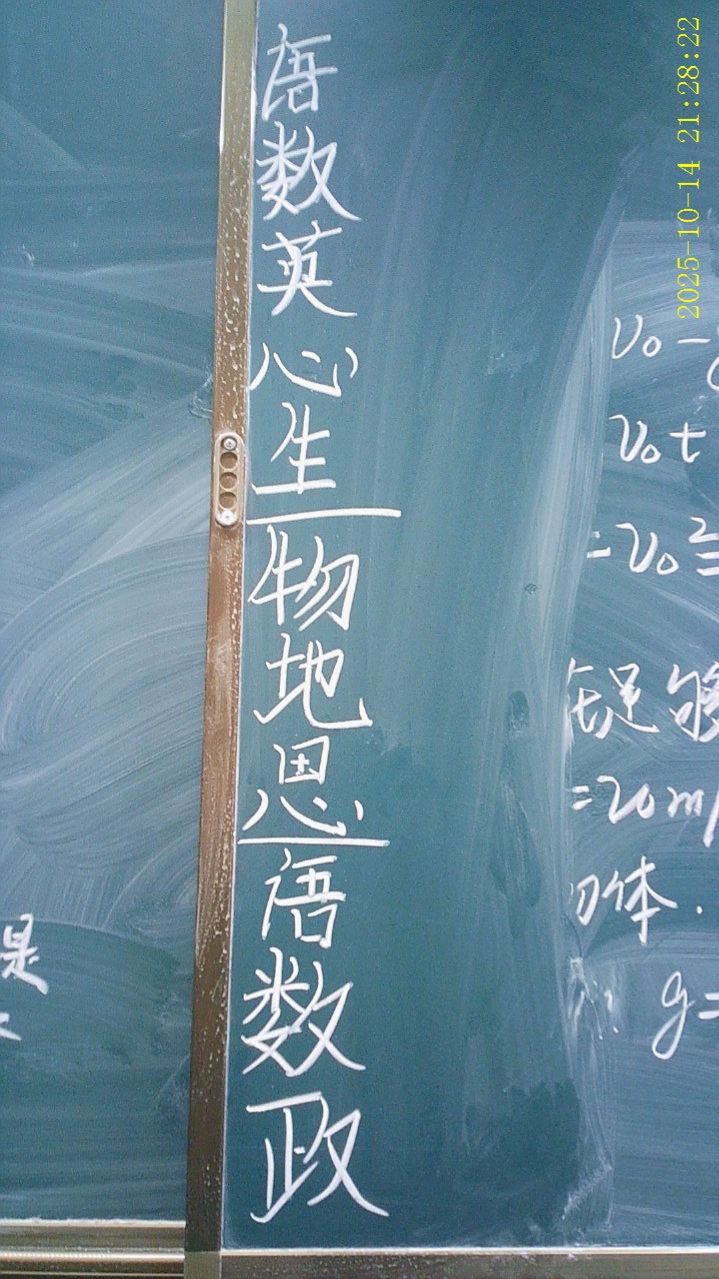 语
数
英
心
生
物
地
思
语
数
政
是
v₀-
v₀t
=v₀²
足够
=20m/
体.
g=
2025-10-14 21:28:22